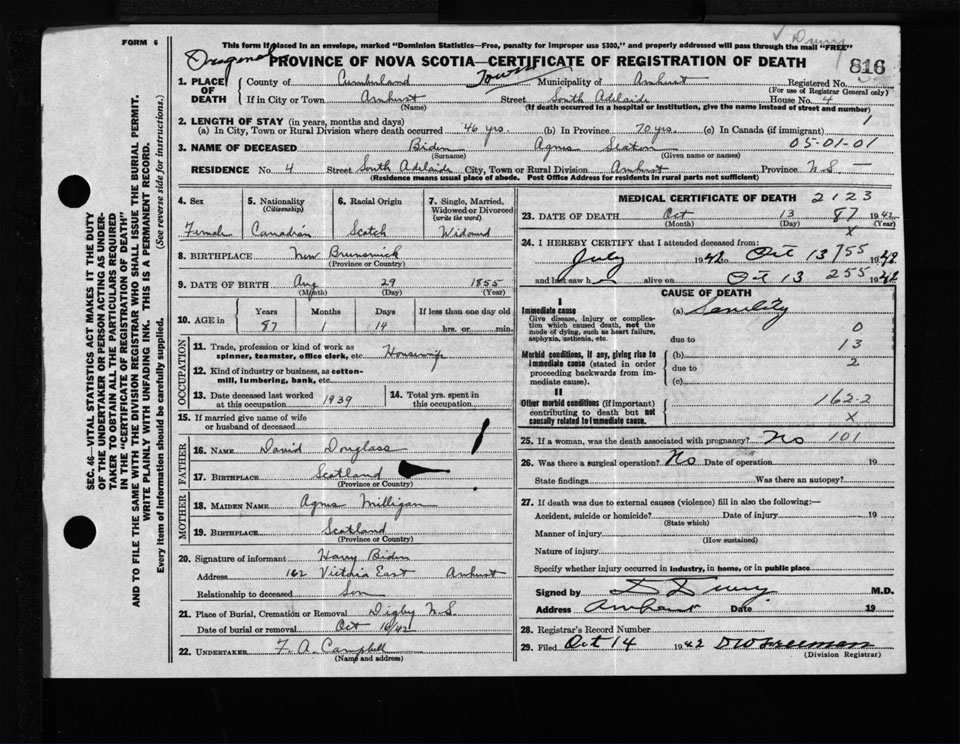 FORM 6
This form if placed in an envelope, marked "Dominion Statistics—Free, penalty for improper use $300," and properly addressed will pass through the mail "FREE"
PROVINCE OF NOVA SCOTIA—CERTIFICATE OF REGISTRATION OF DEATH
816
1. PLACE OF DEATH
County of Cumberland Town Municipality of Amherst Registered No.
(For use of Registrar General only)
If in City or Town Amherst Street South Adelaide House No. 4
(Name) (If death occurred in a hospital or institution, give the name instead of street and number)
2. LENGTH OF STAY (in years, months and days)
(a) In City, Town or Rural Division where death occurred 46 yrs. (b) In Province 70 yrs. (c) In Canada (if immigrant)
1
3. NAME OF DECEASED Biden Agnes Seaton 05-01-01
(Surname) (Given name or names)
RESIDENCE No. 4 Street South Adelaide City, Town or Rural Division Amherst Province N.S. —
(Residence means usual place of abode. Post Office Address for residents in rural parts not sufficient)
4. Sex
Female
5. Nationality (Citizenship)
Canadian
6. Racial Origin
Scotch
7. Single, Married, Widowed or Divorced (write the word)
Widowed
8. BIRTHPLACE New Brunswick
(Province or Country)
9. DATE OF BIRTH Aug 29 1855
(Month) (Day) (Year)
10. AGE in Years Months Days If less than one day old
87 1 14 hrs. or min.
OCCUPATION
11. Trade, profession or kind of work as spinner, teamster, office clerk, etc. Housewife
12. Kind of industry or business, as cotton-mill, lumbering, bank, etc.
13. Date deceased last worked at this occupation 1939
14. Total yrs. spent in this occupation
15. If married give name of wife or husband of deceased
FATHER
16. NAME David Douglass
17. BIRTHPLACE Scotland
(Province or Country)
MOTHER
18. MAIDEN NAME Agnes Milligan
19. BIRTHPLACE Scotland
(Province or Country)
20. Signature of informant Harry Biden
Address 162 Victoria East Amherst
Relationship to deceased Son
21. Place of Burial, Cremation or Removal Digby N.S.
Date of burial or removal Oct 16/42
22. UNDERTAKER F. A. Campbell
(Name and address)
MEDICAL CERTIFICATE OF DEATH 2123
23. DATE OF DEATH Oct 13 87 1942
(Month) (Day) (Year)
X
24. I HEREBY CERTIFY that I attended deceased from:
July 1942 to Oct 13 755 1942
and last saw h alive on Oct 13 255 1942
CAUSE OF DEATH
I
Immediate cause (a) Senility
Give disease, injury or complication which caused death, not the mode of dying, such as heart failure, asphyxia, asthenia, etc.
0
due to 13
Morbid conditions, if any, giving rise to immediate cause (stated in order proceeding backwards from immediate cause).
(b)
2
due to
(c)
II
162-2
Other morbid conditions (if important) contributing to death but not causally related to immediate cause.
X
25. If a woman, was the death associated with pregnancy? No 101
26. Was there a surgical operation? No Date of operation 19
State findings Was there an autopsy?
27. If death was due to external causes (violence) fill in also the following:—
Accident, suicide or homicide? Date of injury 19
(State which)
Manner of injury
(How sustained)
Nature of injury
Specify whether injury occurred in industry, in home, or in public place
Signed by M.D.
Address Amherst Date 19
28. Registrar's Record Number
29. Filed Oct 14 1942 DW Freeman
(Division Registrar)
SEC. 46—VITAL STATISTICS ACT MAKES IT THE DUTY
OF THE UNDERTAKER OR PERSON ACTING AS UNDER-
TAKER TO OBTAIN ALL THE PARTICULARS REQUIRED
IN THE "CERTIFICATE OF REGISTRATION OF DEATH"
AND TO FILE THE SAME WITH THE DIVISION REGISTRAR WHO SHALL ISSUE THE BURIAL PERMIT.
WRITE PLAINLY WITH UNFADING INK. THIS IS A PERMANENT RECORD.
Every item of information should be carefully supplied. (See reverse side for instructions.)